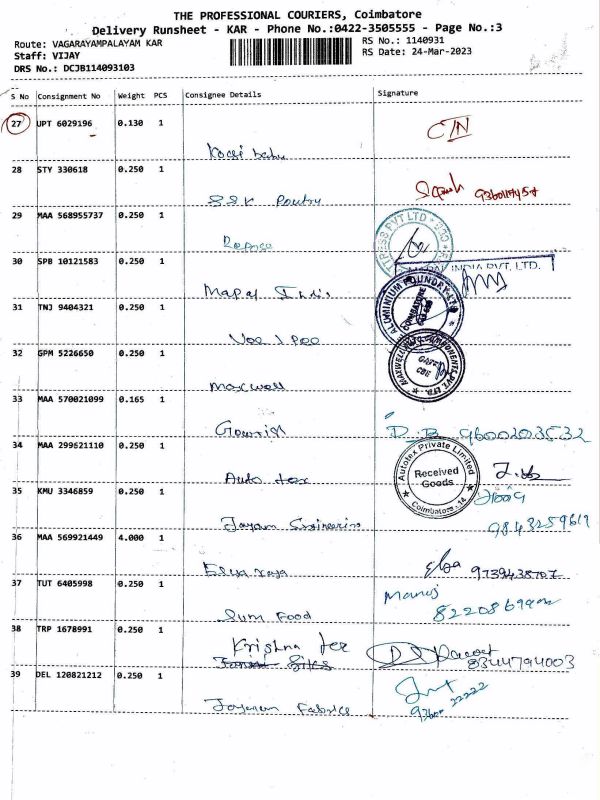 THE PROFESSIONAL COURIERS, Coimbatore
Delivery Runsheet - KAR - Phone No.:0422-3505555 - Page No.:3
Route: VAGARAYAMPALAYAM KAR
RS No.: 1140931
Staff: VIJAY
RS Date: 24-Mar-2023
DRS No.: DCJB114093103
S No Consignment No Weight PCS Consignee Details Signature
27 UPT 6029196 0.130 1
28 STY 330618 0.250 1
SSK
29 MAA 568955737 0.250 1
30 SPB 10121583 0.250 1
INDIA PVT. LTD.
Mapal India
31 TNJ 9404321 0.250 1
ALUMINIUM FOUNDRY
COIMBATORE
32 GPM 5226650 0.250 1
Maxwell
33 MAA 570021099 0.165 1
Gowrish
D.B 9600203532
34 MAA 299621110 0.250 1
Autotex Private Limited
Received
Goods
Coimbatore - 14
Auto tex
35 KMU 3346859 0.250 1
Jayam Engineering
9843259619
36 MAA 569921449 4.000 1
9739438707
37 TUT 6405998 0.250 1
Manoj
Sum Food
38 TRP 1678991 0.250 1
Krishna tex
8344794003
39 DEL 120821212 0.250 1
22222
Fabrics